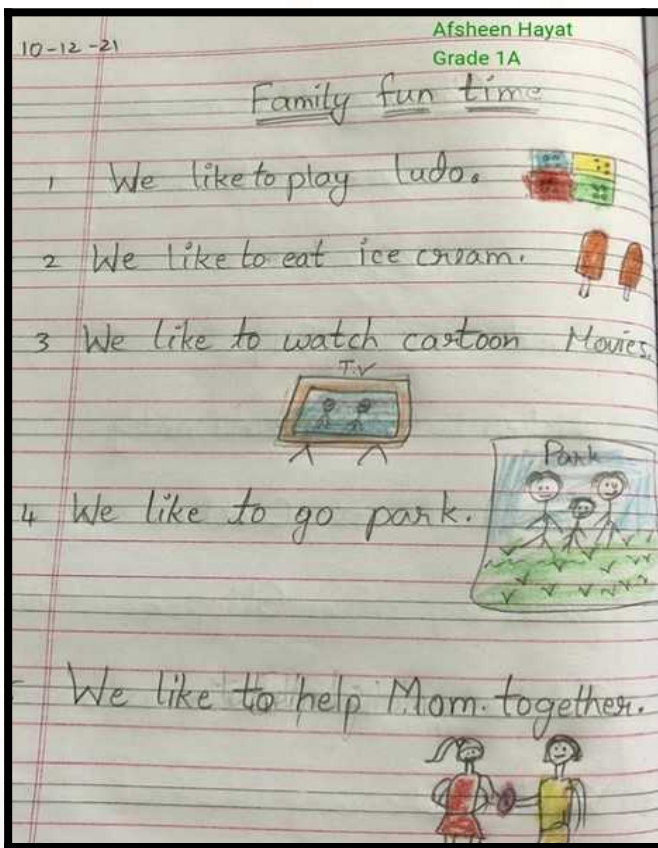 Afsheen Hayat
10-12-21
Grade 1A
Family fun time
1 We like to play ludo.
2 We like to eat ice cream.
3 We like to watch cartoon Movies.
T.V
Park
4 We like to go park.
We like to help Mom. together.